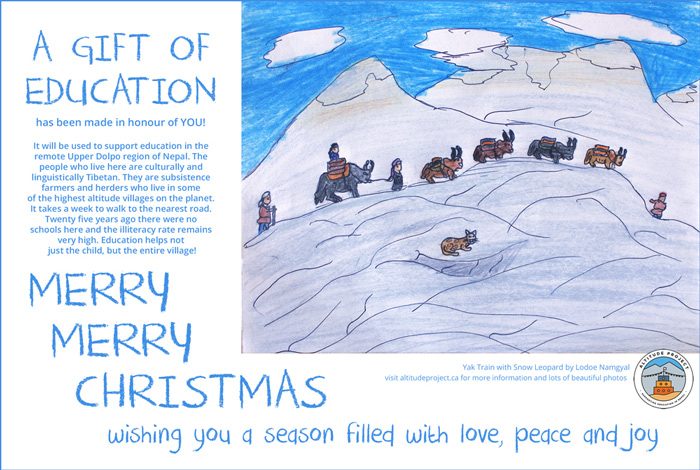 A GIFT OF
EDUCATION
has been made in honour of YOU!
It will be used to support education in the
remote Upper Dolpo region of Nepal. The
people who live here are culturally and
linguistically Tibetan. They are subsistence
farmers and herders who live in some
of the highest altitude villages on the planet.
It takes a week to walk to the nearest road.
Twenty five years ago there were no
schools here and the illiteracy rate remains
very high. Education helps not
just the child, but the entire village!
MERRY
MERRY
CHRISTMAS
Yak Train with Snow Leopard by Lodoe Namgyal
visit altitudeproject.ca for more information and lots of beautiful photos
ALTITUDE PROJECT
wishing you a season filled with love, peace and joy